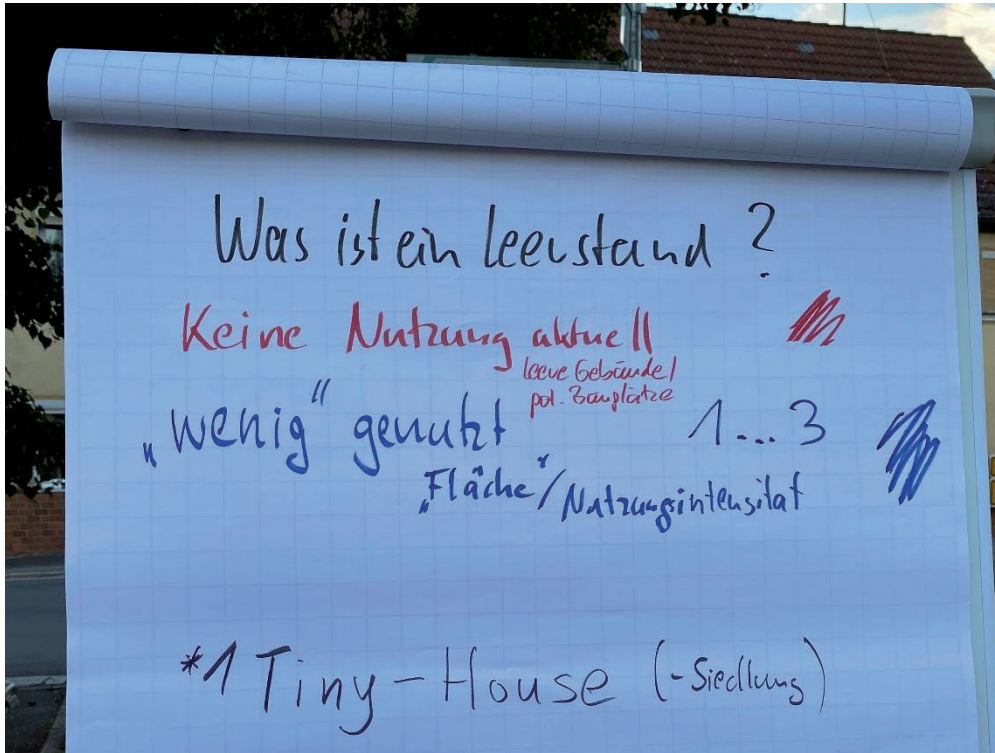 Was ist ein Leerstand ?
Keine Nutzung aktuell
leere Gebäude/
pot. Bauplätze
„wenig“ genutzt 1...3
„Fläche“/Nutzungsintensität
*1 Tiny-House (-Siedlung)